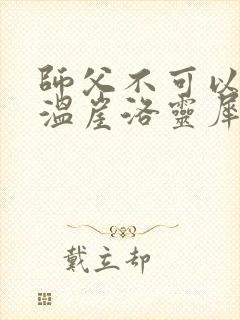 師父不可以
溫崖洛靈犀
戴立却